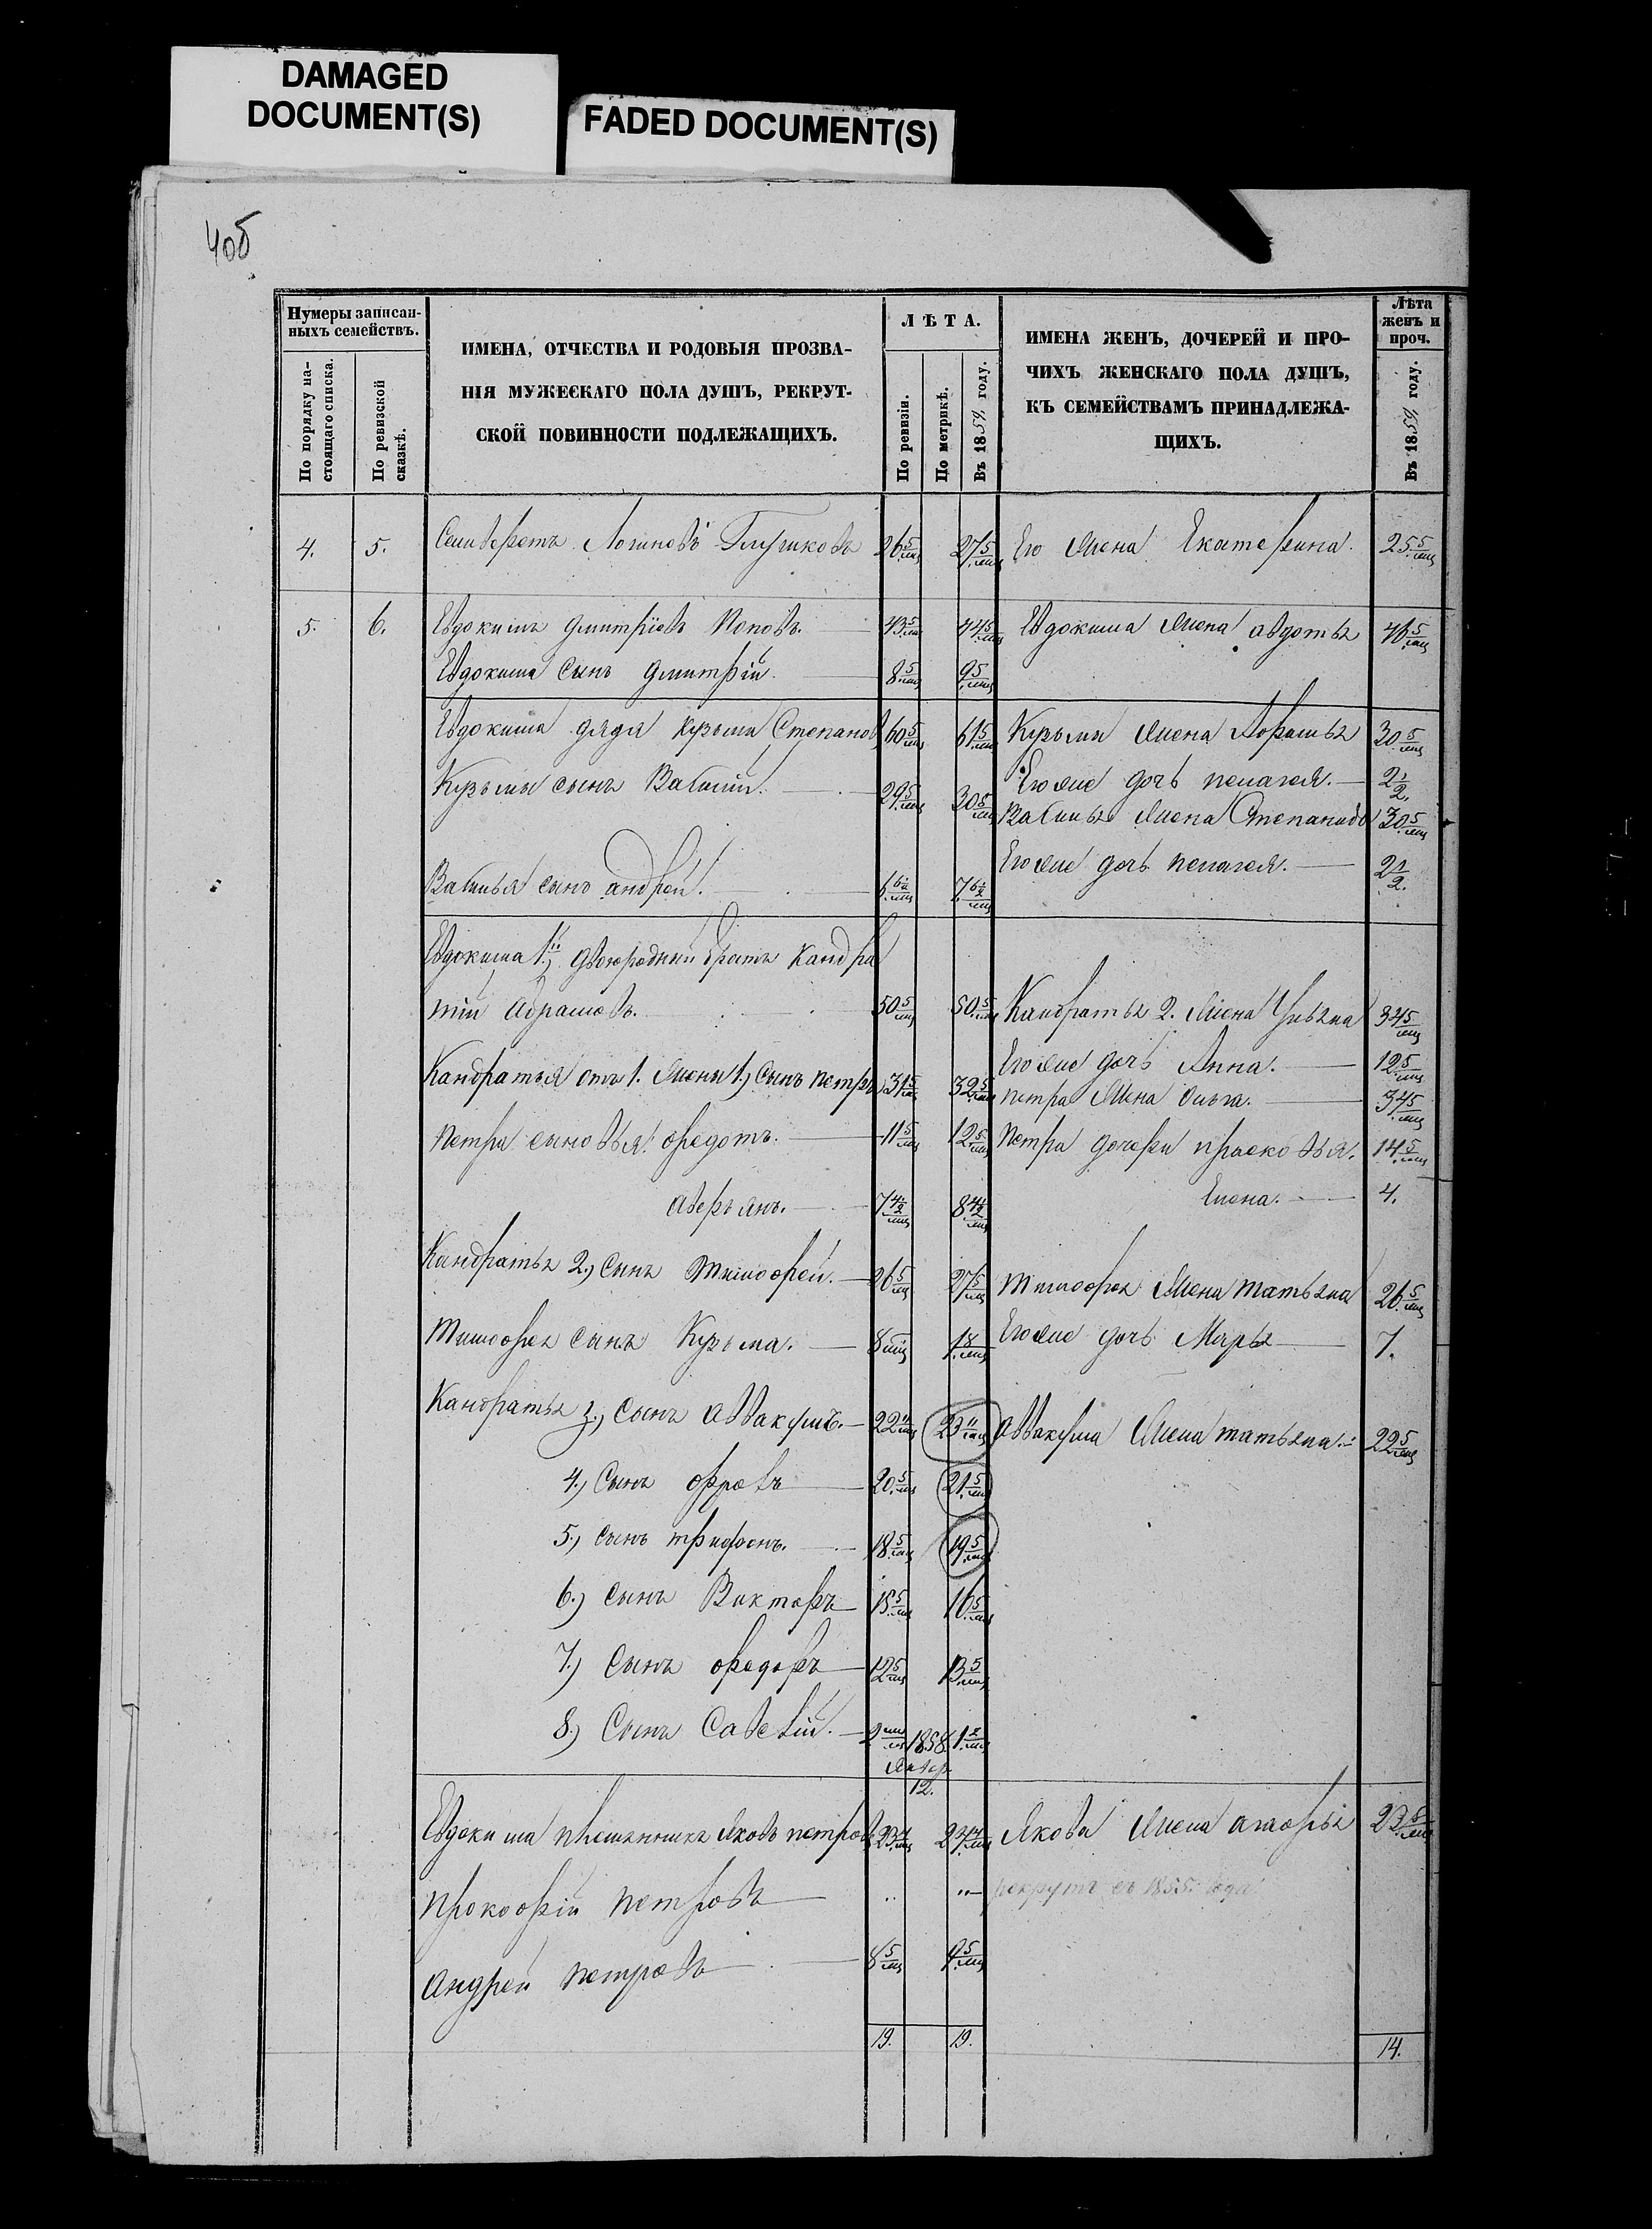 DAMAGED
DOCUMENT(S)
FADED DOCUMENT(S)
406
Нумеры записан-
ныхъ семействъ.
По порядку на-
стоящаго списка.
По ревизской
сказкѣ.
ИМЕНА, ОТЧЕСТВА И РОДОВЫЯ ПРОЗВА-
НІЯ МУЖЕСКАГО ПОЛА ДУШЪ, РЕКРУТ-
СКОЙ ПОВИННОСТИ ПОДЛЕЖАЩИХЪ.
ЛѢТА.
По ревизіи.
По метрикѣ.
Въ 1859 году.
ИМЕНА ЖЕНЪ, ДОЧЕРЕЙ И ПРО-
ЧИХЪ ЖЕНСКАГО ПОЛА ДУШЪ,
КЪ СЕМЕЙСТВАМЪ ПРИНАДЛЕЖА-
ЩИХЪ.
Лѣта
женъ и
проч.
Въ 1859 году.
4. 5. Селиверстъ Логиновъ Глушковъ 26 5/мц 27 5/мц Его жена Екатерина. 25 5/мц
5. 6. Евдокимъ Дмитріевъ Поповъ. 43 5/мц 44 5/мц Евдокима жена авдотья 46 5/мц
Евдокима сынъ Дмитрій. 8 5/мц 9 5/мц
Евдокима дядя Кузьма Степановъ 60 5/мц 61 5/мц Кузьмы жена 30 5/мц
Его же дочь пелагея. 2 1/2.
Кузьмы сынъ Василій. 29 5/мц 30 5/мц Василья жена Степанида 30 5/мц
Его же дочь пелагея. 2 1/2.
Василья сынъ андрей. 6 6 1/2/мц 7 6 1/2/мц
Евдокима 1й двоюродный братъ Кандра
тій Абрамовъ. 50 5/мц 50 5/мц Кандратья 2. жена Ульяна 34 5/мц
Его же дочь Анна. 12 5/мц
Кандратья отъ 1. жены 1.) сынъ петръ 31 5/мц 32 5/мц петра жена Ольга. 34 5/мц
петра сыновья: ѳедотъ. 11 5/мц 12 5/мц петра дочери прасковья. 14 5/мц
аверьянъ. 7 4 1/2/мц 8 4 1/2/мц Елена. 4.
Кандратья 2.) сынъ Тимофей. 26 5/мц 27 5/мц Тимофея жена татьяна 26 5/мц
Тимофея сынъ Кузьма. 8 мц 1 8/мц Его же дочь Марья 7.
Кандратья 3.) сынъ аввакумъ. 22 11/мц 23 11/мц аввакума жена татьяна. 22 5/мц
4.) сынъ фролъ 20 5/мц 21 5/мц
5.) сынъ трифонъ. 18 5/мц 19 5/мц
6.) сынъ Викторъ 15 5/мц 16 5/мц
7.) сынъ ѳедоръ 12 5/мц 13 5/мц
8.) сынъ Савелій. 2 1858 Январ. 12. 1 2/мц
Евдокима племянникъ Яковъ петровъ 23 4/мц 24 4/мц Якова жена 23 5/мц
прокофій петровъ " " рекрутъ съ 1855. года
андрей петровъ 8 5/мц 9 5/мц
19. 19. 14.